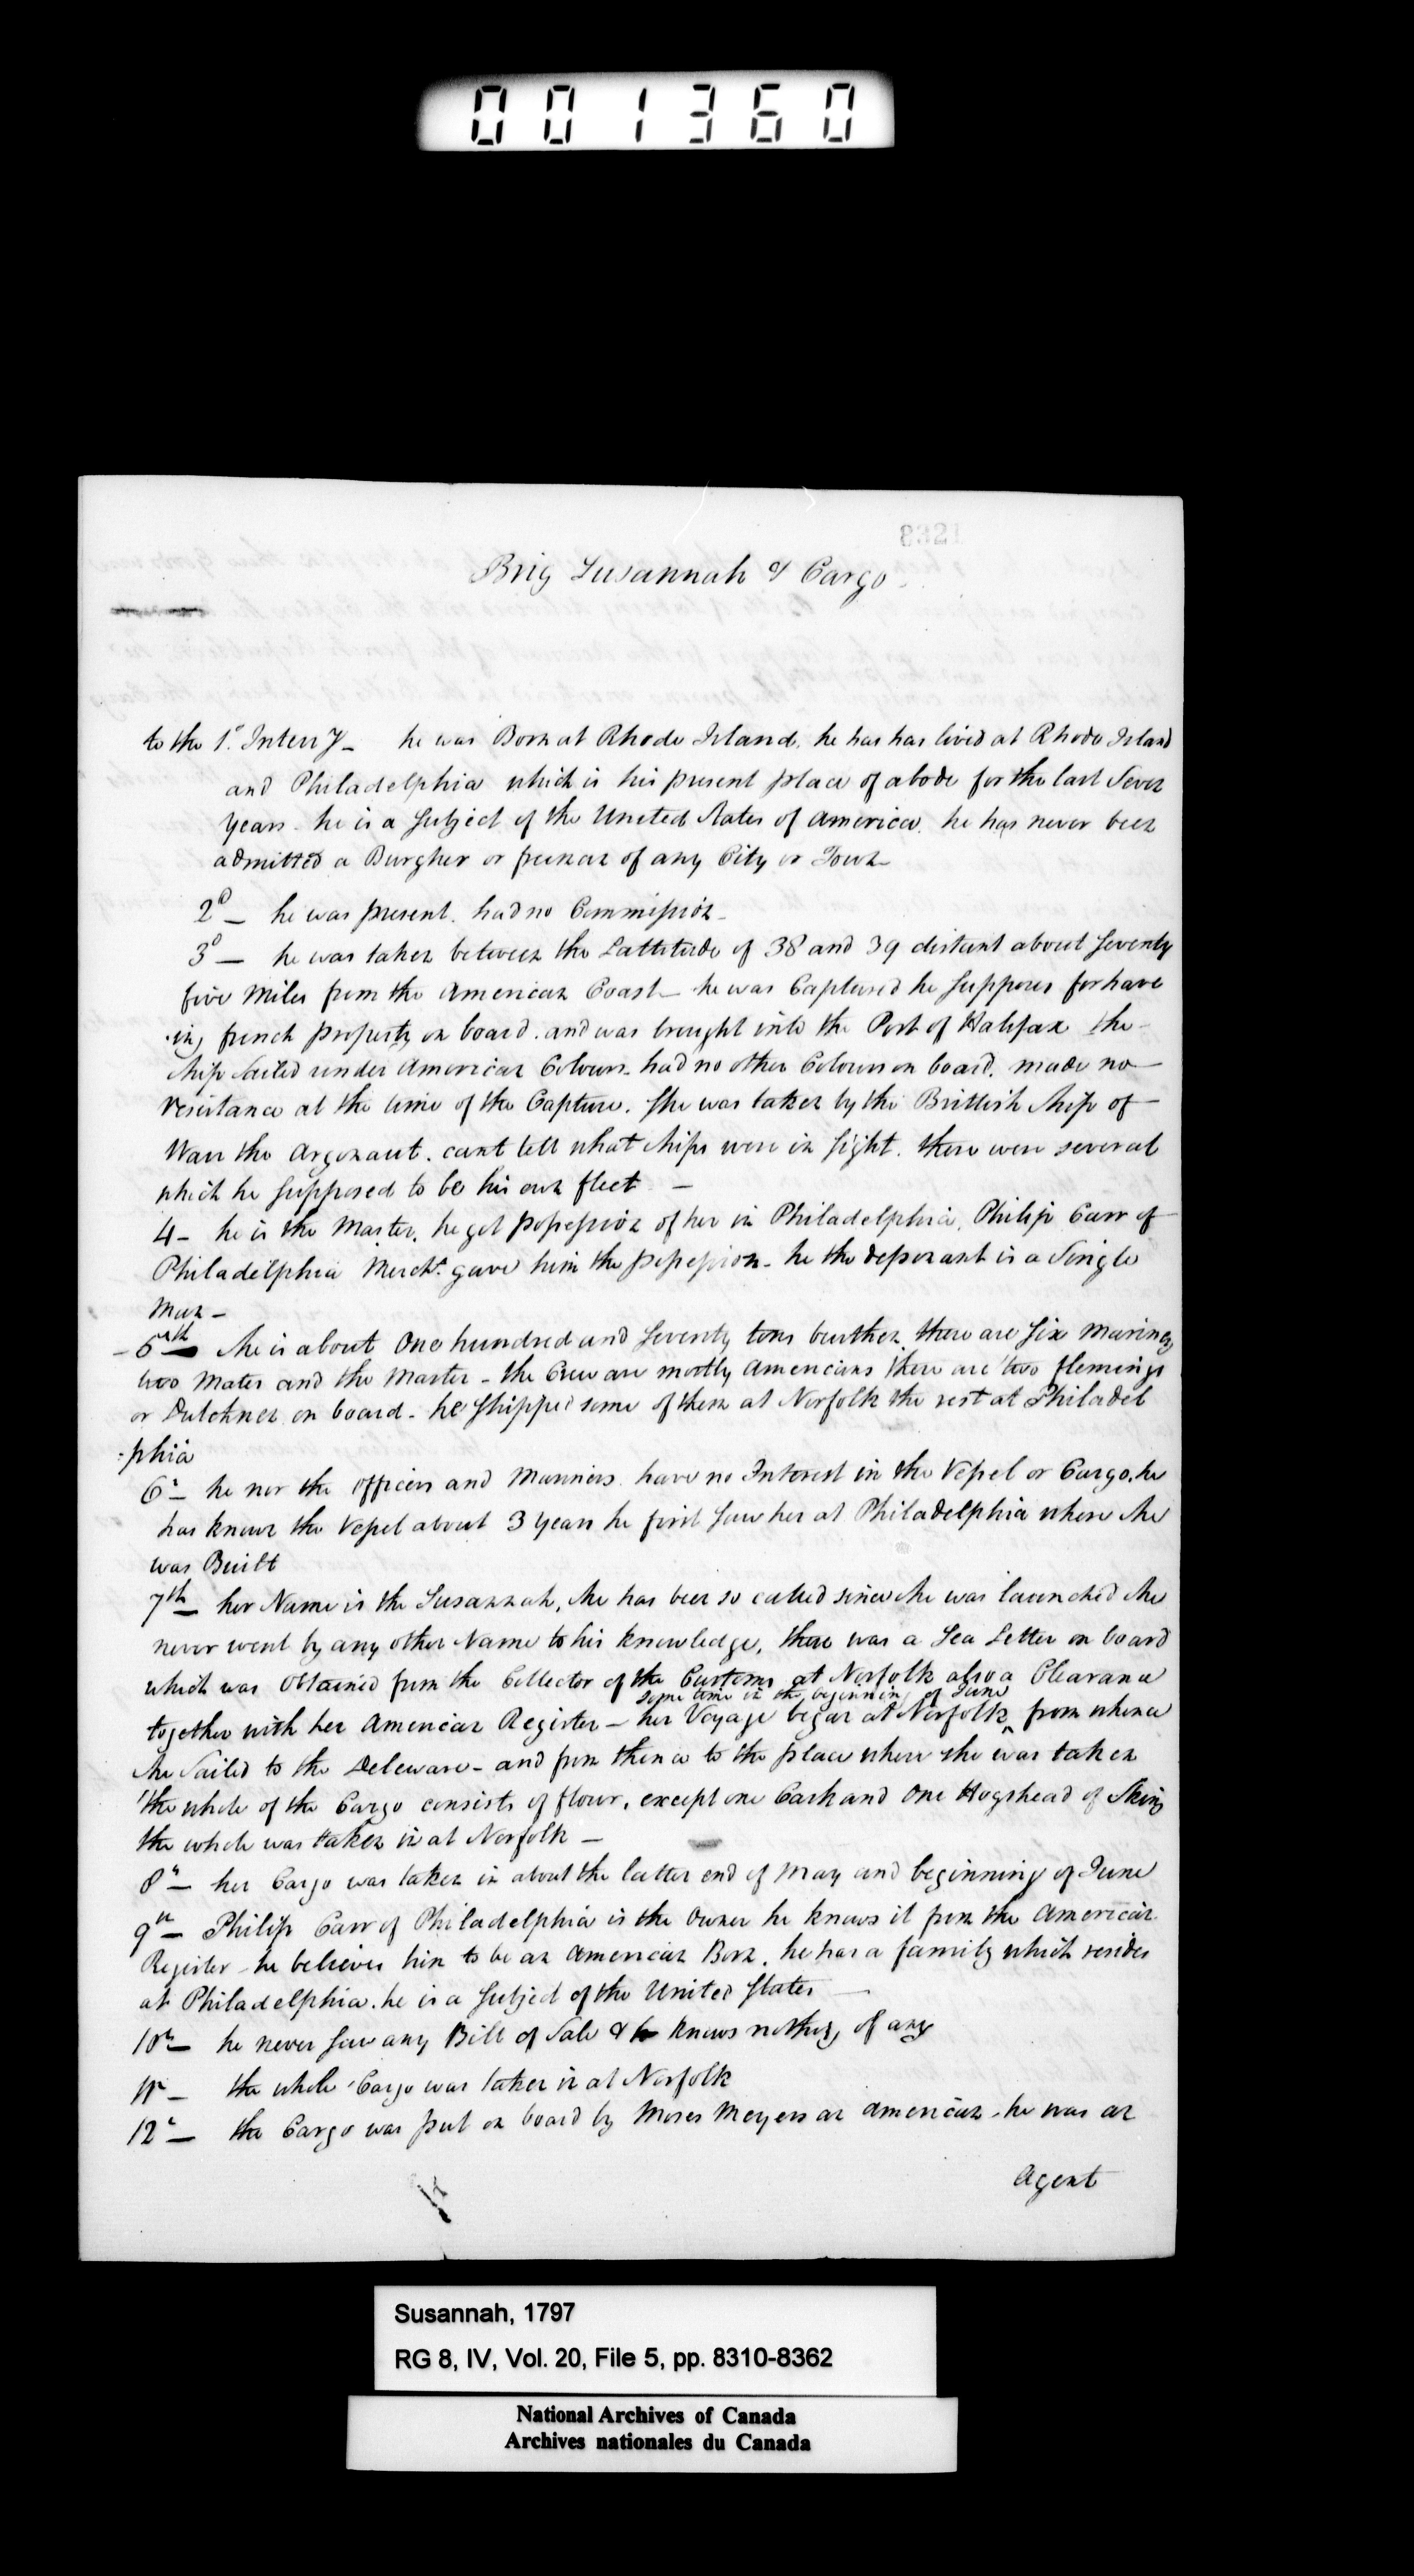 001360
8321
Brig Susannah & Cargo
to the 1st Interry - he was Born at Rhode Island, he has has lived at Rhode Island
and Philadelphia which is his present place of abode for the last Seven
Years - he is a Subject of the United States of America. he has never been
admitted a Burgher or freeman of any City or Town -
2d - he was present. had no Commission -
3d - he was taken between the Lattitude of 38 and 39 distant about Seventy
five Miles from the American Coast - he was Captured he Supposes for have
-ing french property on board. and was brought into the Port of Halifax the -
Ship Sailed under American Colours - had no other Colours on board. made no -
resistance at the time of the Capture. She was taken by the Brittish Ship of -
Warr the Argonaut. cant tell what ships were in Sight. there were several
which he Supposed to be his own fleet -
4 - he is the Master. he got possession of her in Philadelphia, Philip Carr of
Philadelphia Mercht. gave him the possession - he the deponant is a Single
Man -
- 5th She is about One hundred and Seventy tons burthen. there are Six Mariners
two Mates and the Master - the Crew are mostly Americans there are two flemings
or Dutchmen on board - he Shipped some of them at Norfolk the rest at Philadel
-phia
6th - he nor the officers and Mariners have no Interest in the Vessel or Cargo. he
has known the Vessel about 3 Years he first Saw her at Philadelphia where she
was Built
7th - her Name is the Susannah, She has been so called since she was launched she
never went by any other Name to his knowledge, there was a Sea Letter on board
which was Obtained from the Collector of the Customs at Norfolk also a Clearance
some time in the beginning of June
together with her American Register - her Voyage began at Norfolk ^ from whence
she Sailed to the Deleware - and from thence to the place where she was taken
the whole of the Cargo consists of flour, except one Cask and One Hogshead of Skins
the whole was taken in at Norfolk -
8th - her Cargo was taken in about the latter end of May and beginning of June
9th - Philip Carr of Philadelphia is the Owner he knows it from the American
Register - he believes him to be an American Born. he has a family which resides
at Philadelphia. he is a Subject of the United States -
10th - he never Saw any Bill of Sale & knows nothing of any
11th - the whole Cargo was taken in at Norfolk
12th - the Cargo was put on board by Moses Meyers an American - he was an
Agent
Susannah, 1797
RG 8, IV, Vol. 20, File 5, pp. 8310-8362
National Archives of Canada
Archives nationales du Canada